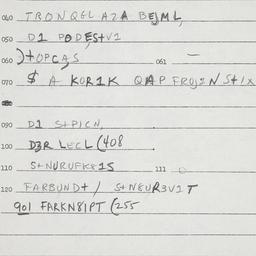 040 TRONQGL AZA BEJML,
050 D1 PODESTV1
060 )TOPCAS 061 —
070 $ A KOR1K QAP FROJZN ST1X
090 D1 STPICN,
100 D3R LECL (408
110 STNURUFK81S 111
120 FARBUNDT / STN8UR3V1T
901 FARKN81PT (255